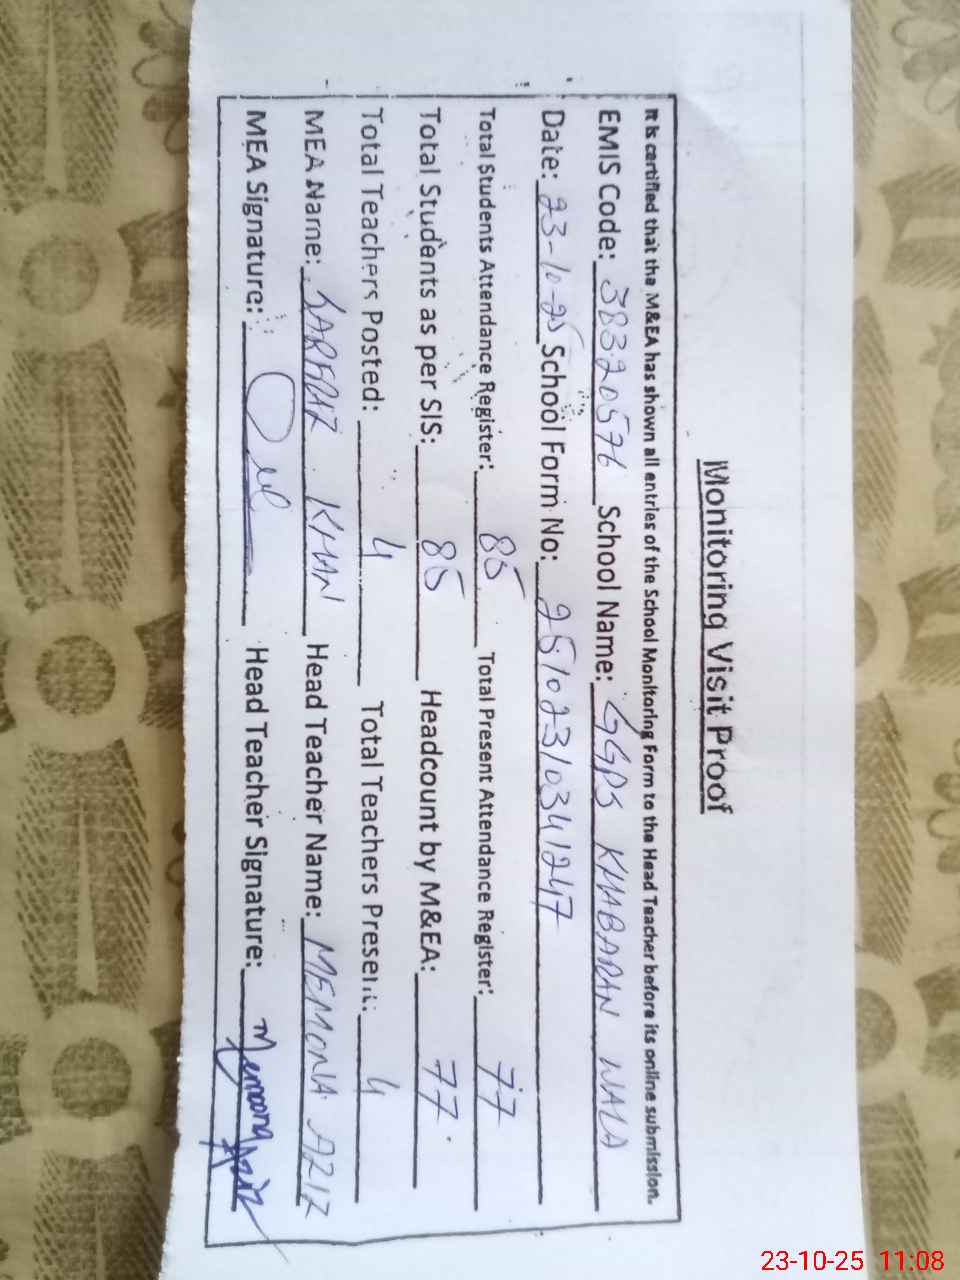 Monitoring Visit Proof
It is certified that the M&EA has shown all entries of the School Monitoring Form to the Head Teacher before its online submission.
EMIS Code: 38320576 School Name: GGPS KHABARAN WALA
Date: 23-10-25 School Form No: 25102310341247
Total Students Attendance Register: 85 Total Present Attendance Register: 77
Total Students as per SIS: 85 Headcount by M&EA: 77.
Total Teachers Posted: 4 Total Teachers Present: 4
MEA Name: SARFRAZ KHAN Head Teacher Name: MEMONA AZIZ
MEA Signature: Head Teacher Signature: Memoona Aziz
23-10-25 11:08